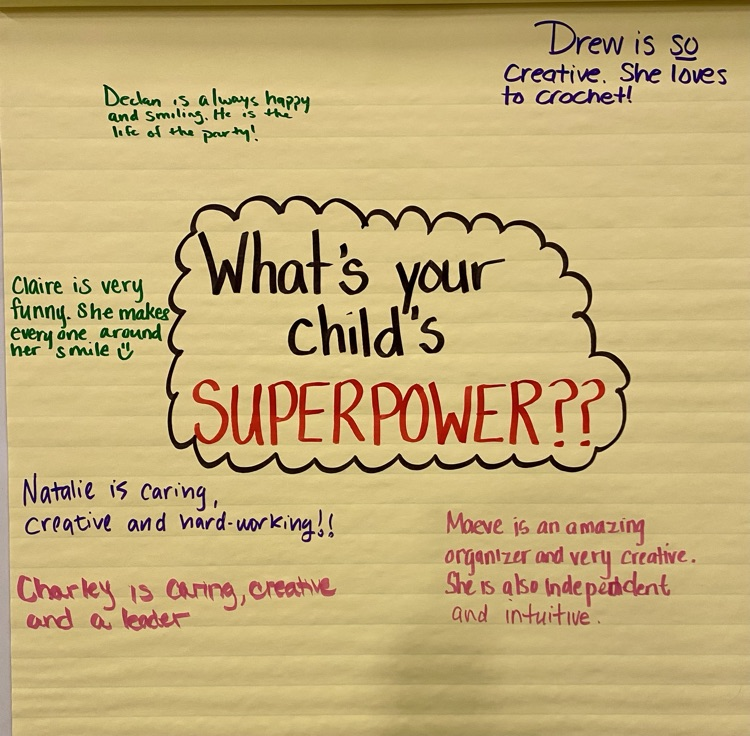 Drew is so
creative. She loves
to crochet!
Declan is always happy
and smiling. He is the
life of the party!
What's your
child's
SUPERPOWER??
Claire is very
funny. She makes
everyone around
her smile
Natalie is caring,
creative and hard-working!!
Charley is caring, creative
and a leader
Maeve is an amazing
organizer and very creative.
She is also independent
and intuitive.